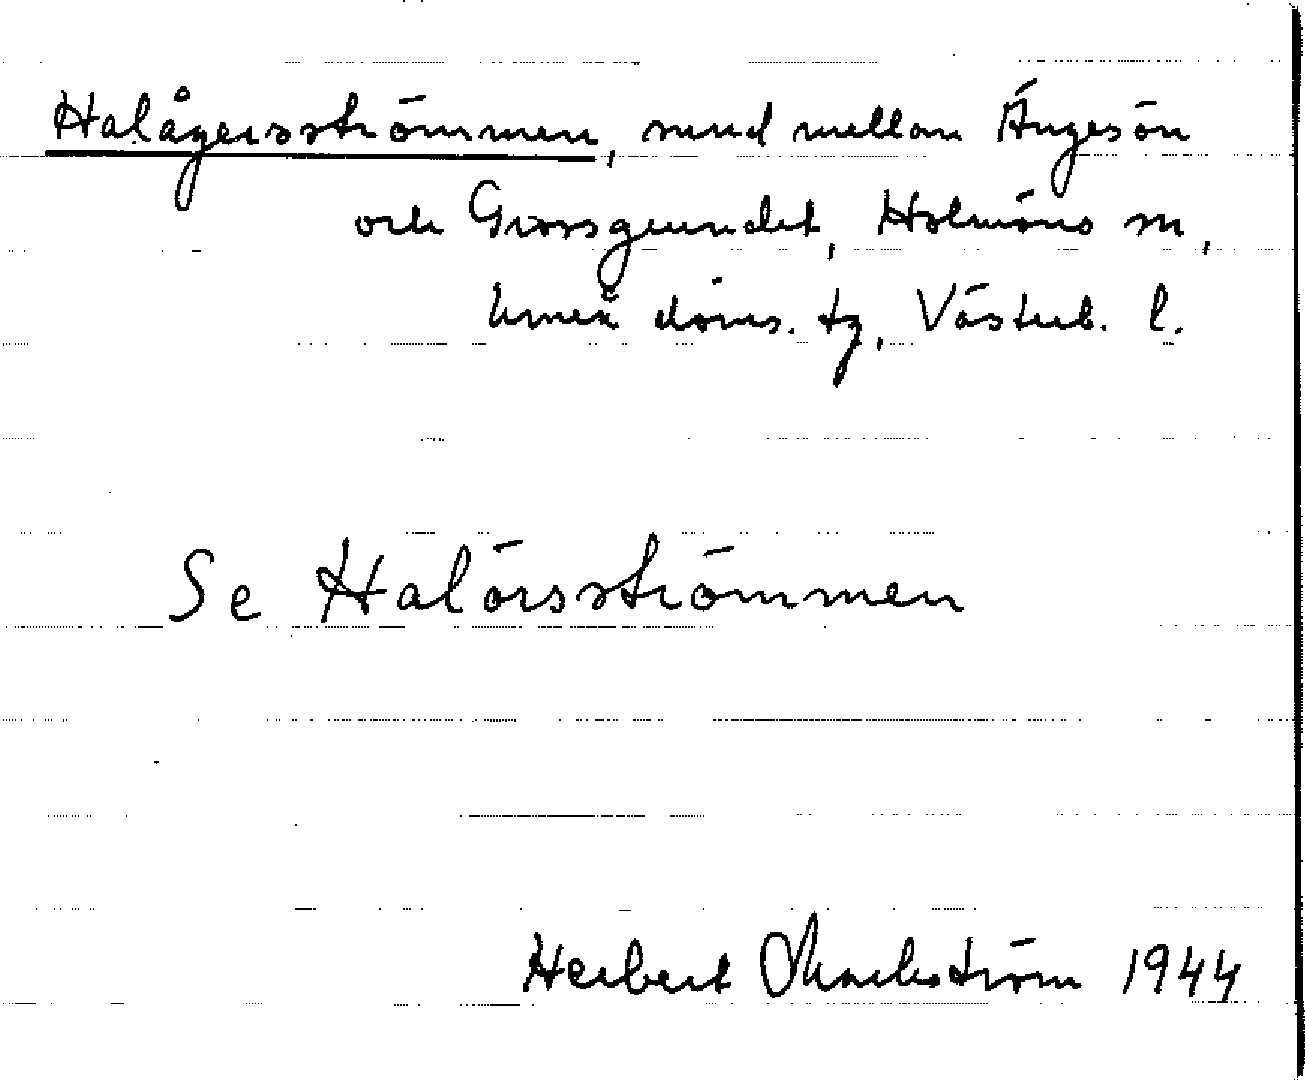 Halågersströmmen, sund mellan Ängesön
och Grossgrundet, Holmöns sn,
Umeå doms. tg, Västerb. l.
Se Halörsströmmen
Herbert Markström 1944